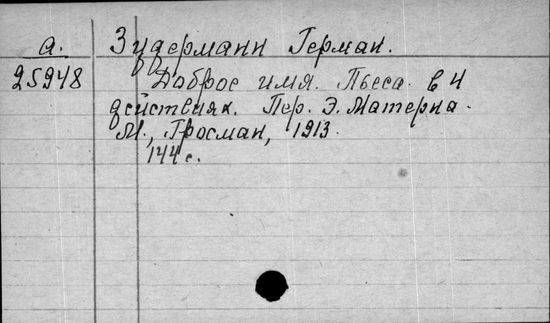 а. Зудерманн Герман.
25948 Доброе имя. Пьеса в 4
действиях. Пер. Э. Матерна.
М., Гросман, 1913.
144 с.